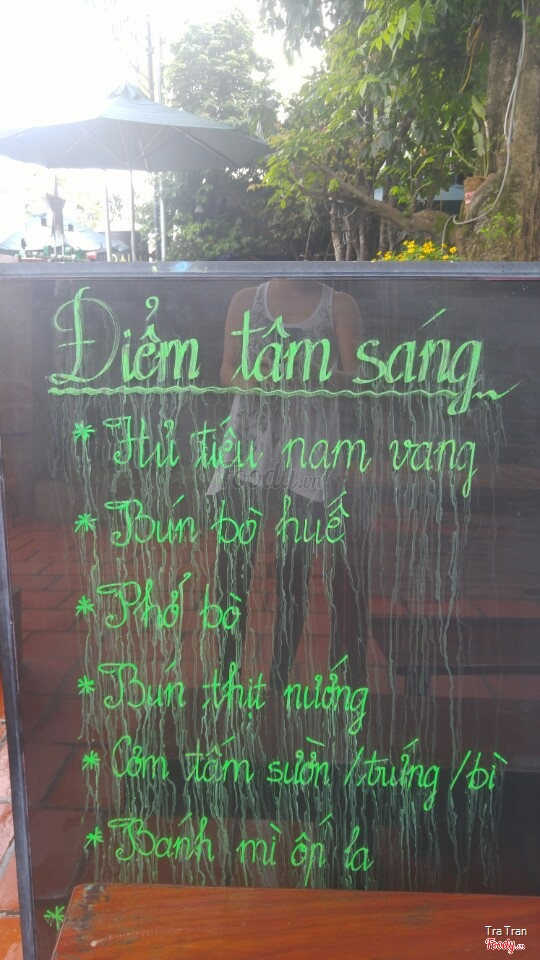 Điểm tâm sáng
* Hủ tiếu nam vang
Foody.vn
* Bún bò huế
* Phở bò
* Bún thịt nướng
* Cơm tấm sườn / trứng / bì
* Bánh mì ốp la
*
Tra Tran
Foody.vn